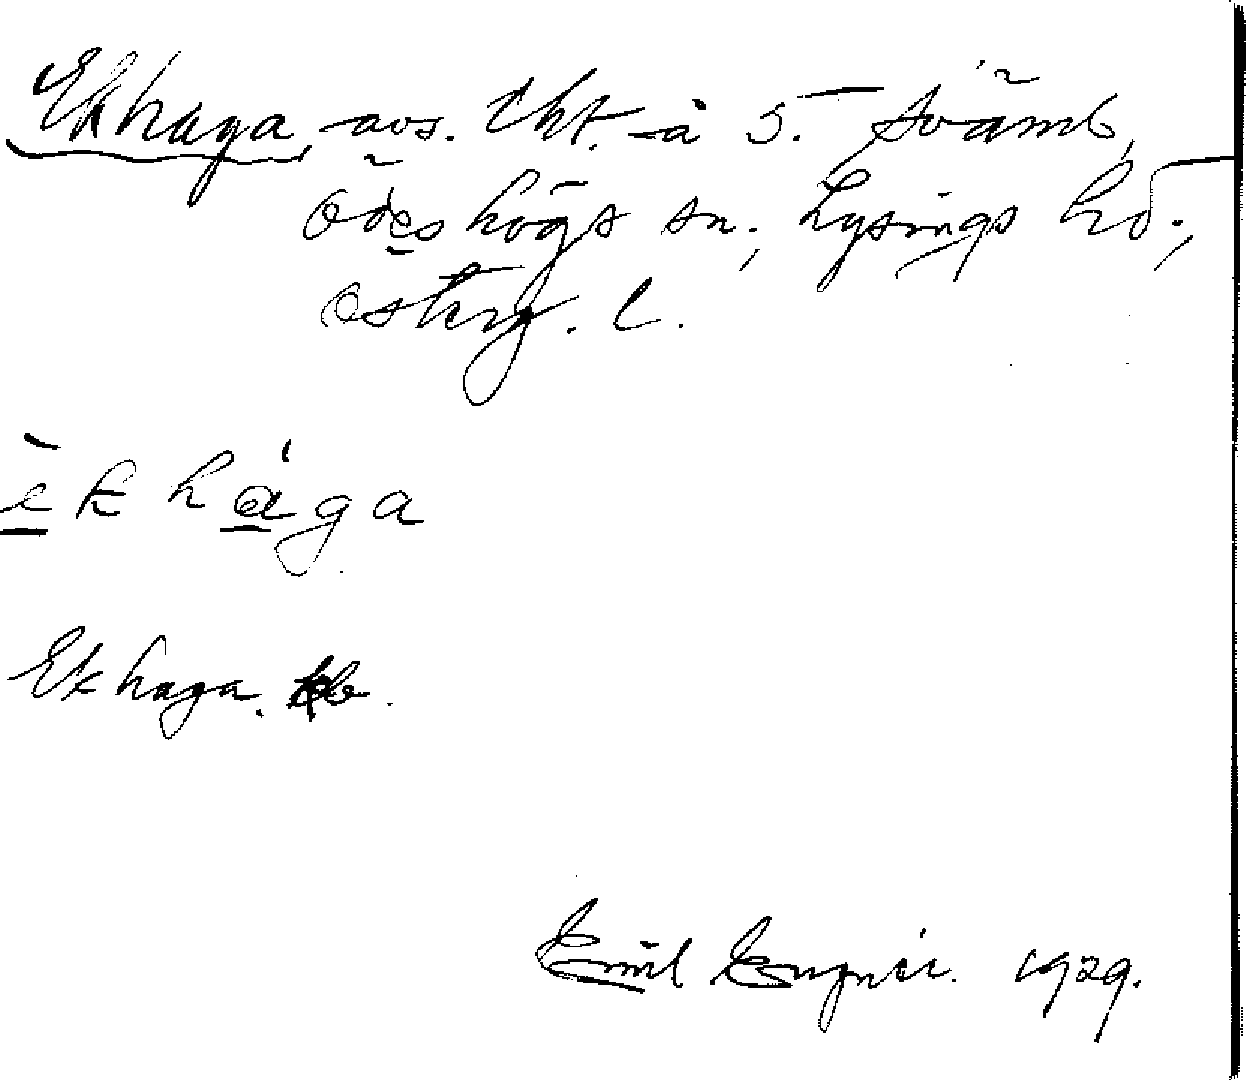 Ekhaga, avs. lht. å S. Svämb,
Ödeshögs sn., Lysings hd.,
Österg. l.
èkhága
Ekhaga.
Emil Engnér. 1929.